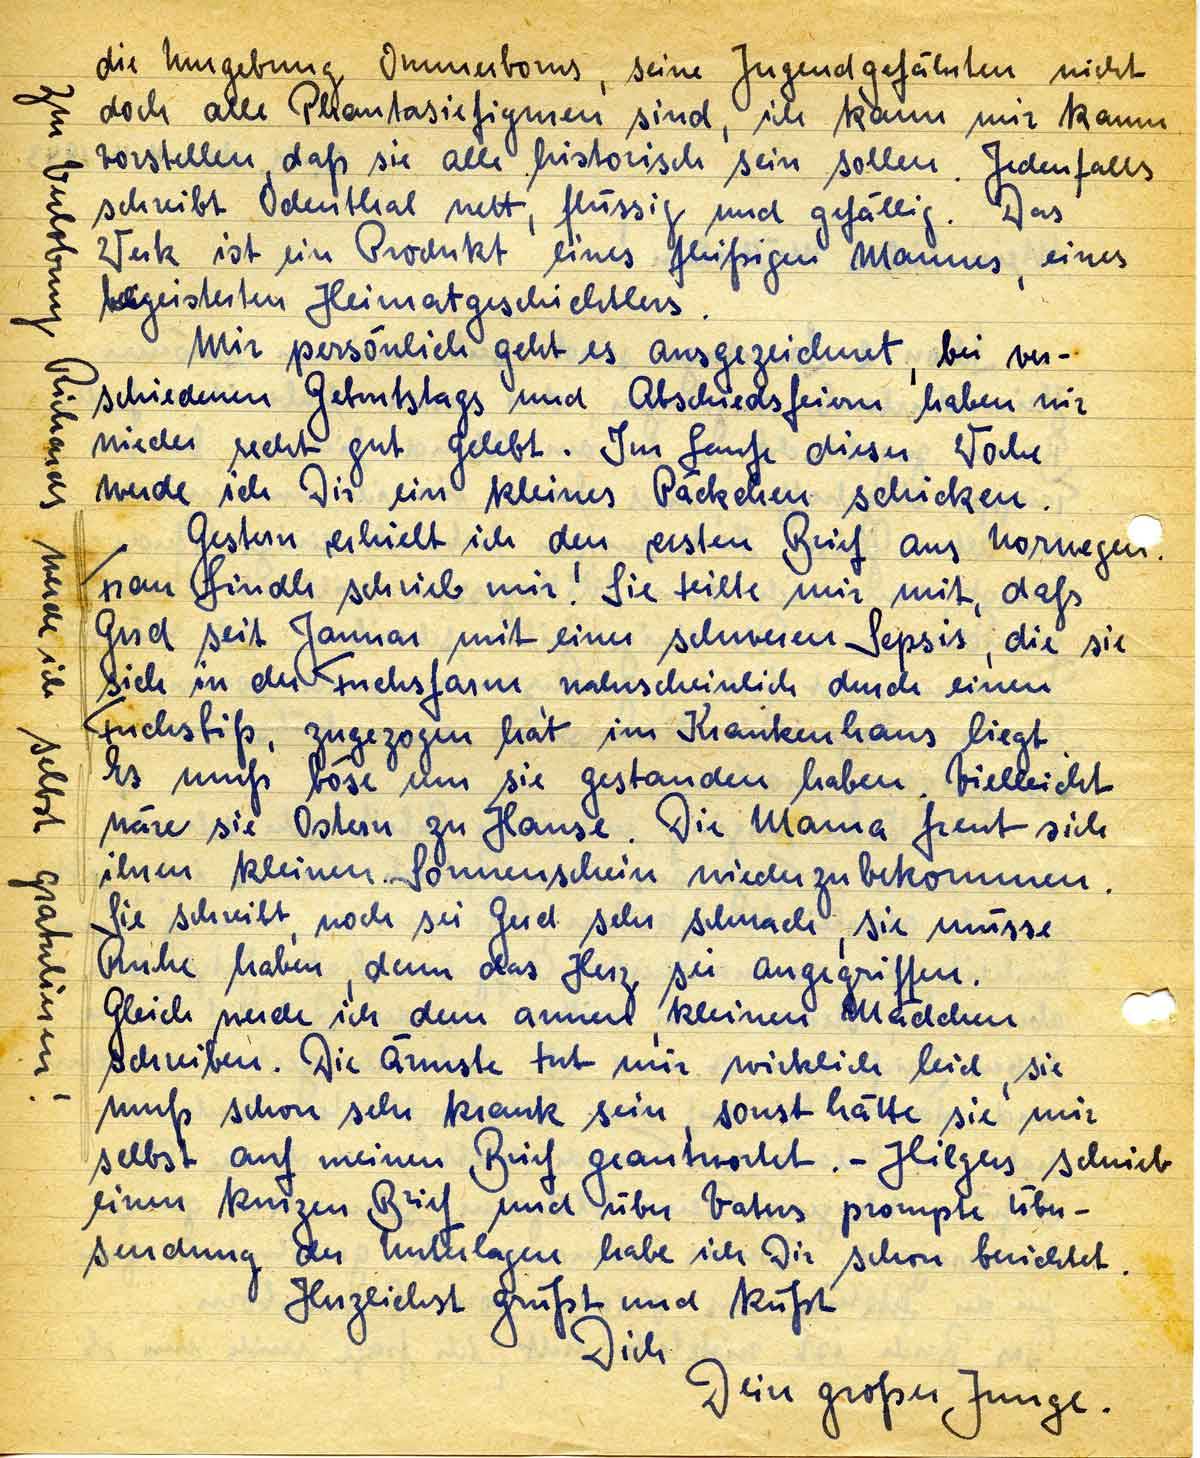 die Umgebung Ommerborns, seine Jugendgefährten nicht
doch alle Phantasiefiguren sind, ich kann mir kaum
vorstellen, daß sie alle historisch sein sollen. Jedenfalls
schreibt Odenthal nett, flüssig und gefällig. Das
Werk ist ein Produkt eines fleißigen Mannes, eines
begeisterten Heimatgeschichtlers.
Mir persönlich geht es ausgezeichnet, bei ver-
schiedenen Geburtstags und Abschiedsfeiern haben wir
wieder recht gut gelebt. Im Laufe dieser Woche
werde ich Dir ein kleines Päckchen schicken.
Gestern erhielt ich den ersten Brief aus Norwegen.
Frau Lindh schrieb mir! Sie teilte mir mit, daß
Gerd seit Januar mit einer schweren Sepsis, die sie
sich in der Fuchsfarm wahrscheinlich durch einen
Fuchsbiß, zugezogen hat im Krankenhaus liegt.
Es muß böse um sie gestanden haben. Vielleicht
wäre sie Ostern zu Hause. Die Mama freut sich
ihren kleinen Sonnenschein wiederzubekommen.
Sie schreibt, noch sei Gerd sehr schwach, sie müsse
Ruhe haben, denn das Herz sei angegriffen.
Gleich werde ich dem armen, kleinen Mädchen
schreiben. Die Ärmste tut mir wirklich leid, sie
muß schon sehr krank sein, sonst hätte sie mir
selbst auf meinen Brief geantwortet. – Hilgers schrieb
einen kurzen Brief und über Vaters prompte Über-
sendung der Unterlagen habe ich Dir schon berichtet.
Herzlichst grüßt und küßt
Dich
Dein großer Junge.
Zur Verlobung Richards werde ich selbst gratulieren!